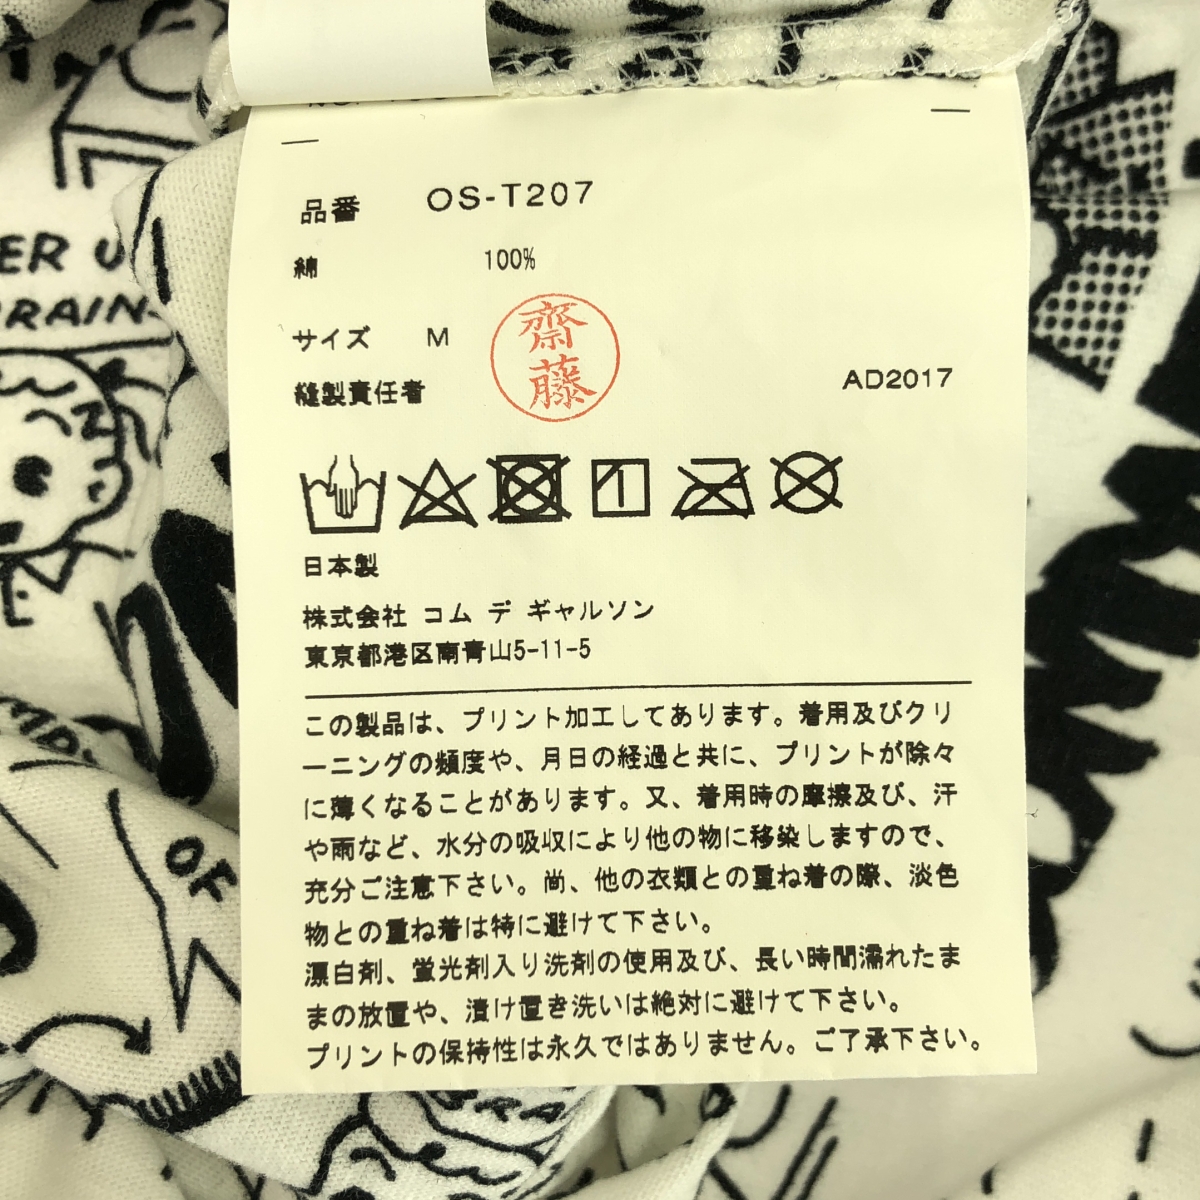 品番 OS-T207
綿 100%
サイズ M
齋藤
縫製責任者 AD2017
日本製
株式会社 コム デ ギャルソン
東京都港区南青山5-11-5
この製品は、プリント加工してあります。着用及びクリ
ーニングの頻度や、月日の経過と共に、プリントが除々
に薄くなることがあります。又、着用時の摩擦及び、汗
や雨など、水分の吸収により他の物に移染しますので、
充分ご注意下さい。尚、他の衣類との重ね着の際、淡色
物との重ね着は特に避けて下さい。
漂白剤、蛍光剤入り洗剤の使用及び、長い時間濡れたま
まの放置や、漬け置き洗いは絶対に避けて下さい。
プリントの保持性は永久ではありません。ご了承下さい。
OF